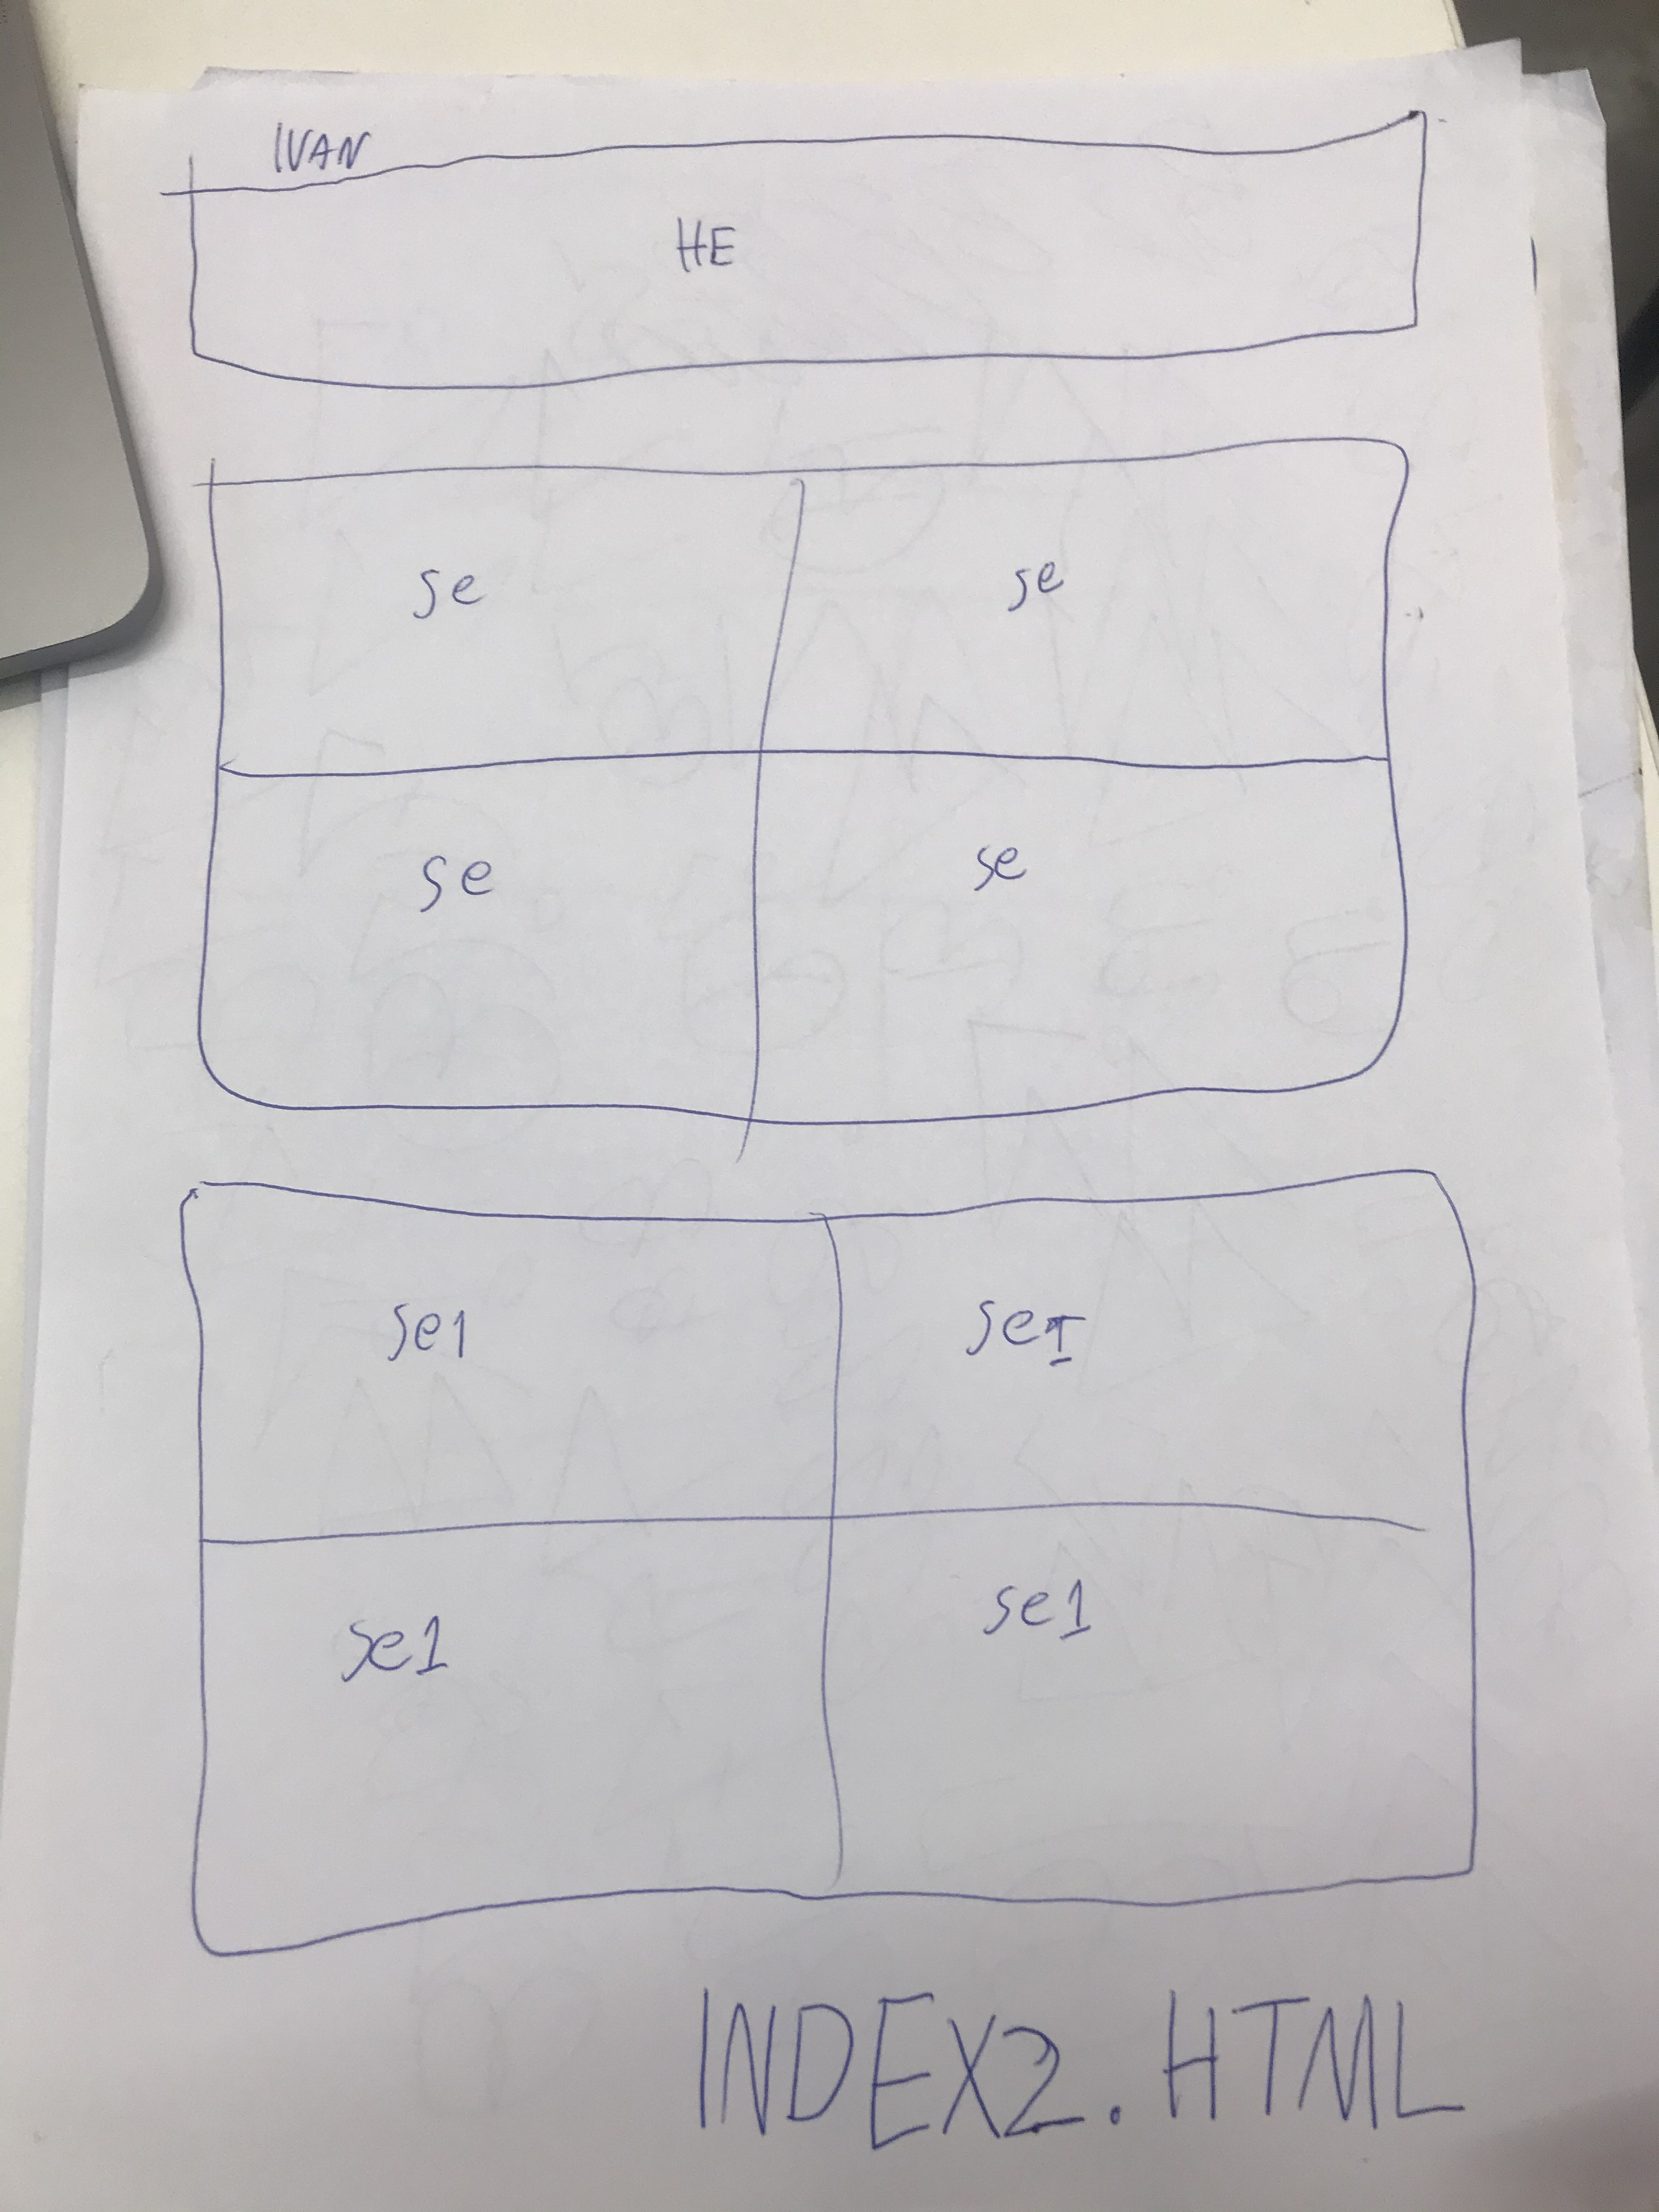 IVAN
HE
se se
se se
se1 seI
se1 se1
INDEX2.HTML